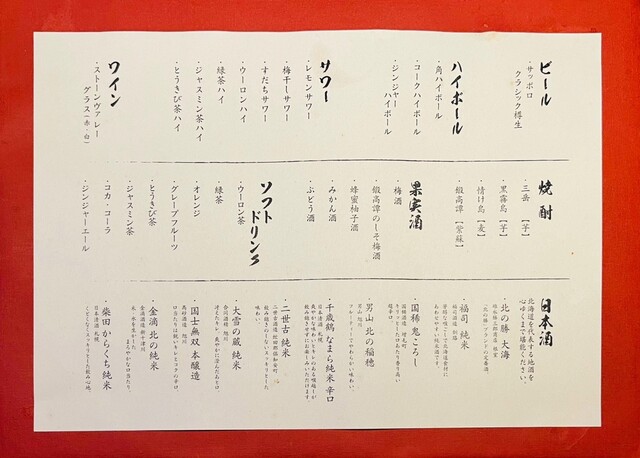 ビール
・サッポロ
クラシック樽生
ハイボール
・角ハイボール
・コークハイボール
・ジンジャー
ハイボール
サワー
・レモンサワー
・梅干しサワー
・すだちサワー
・ウーロンハイ
・緑茶ハイ
・ジャスミン茶ハイ
・とうきび茶ハイ
ワイン
・ストーンヴァレー
グラス(赤・白)
焼酎
・三岳 【芋】
・黒霧島【芋】
・情け島【麦】
・鍛高譚【紫蘇】
果実酒
・梅酒
・鍛高譚のしそ梅酒
・蜂蜜柚子酒
・みかん酒
・ぶどう酒
ソフト
ドリンク
・ウーロン茶
・緑茶
・オレンジ
・グレープフルーツ
・とうきび茶
・ジャスミン茶
・コカ・コーラ
・ジンジャーエール
日本酒
北海道を代表する地酒を
心ゆくまで堪能ください。
・北の勝 大海
・福司 純米
福司酒造 釧路
・国稀 鬼ころし
国稀酒造 増毛町
超辛口
・男山 北の稲穂
男山 旭川
・千歳鶴 なまら純米 辛口
日本清酒 札幌
・二世古 純米
味わい
・大雪の蔵 純米
合同酒精 旭川
・国士無双 本醸造
高砂酒造 旭川
・金滴 北の純米
金滴酒造 新十津川
・柴田 からくち純米
日本清酒 札幌